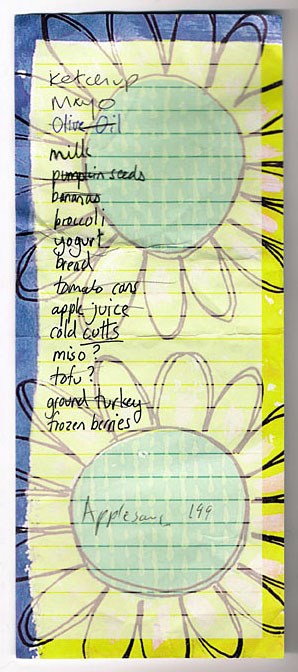 Ketchup
Mayo
Olive Oil
milk
pumpkin seeds
bananas
broccoli
yogurt
bread
tomato cans
apple juice
cold cutts
miso ?
tofu ?
ground turkey
frozen berries
199